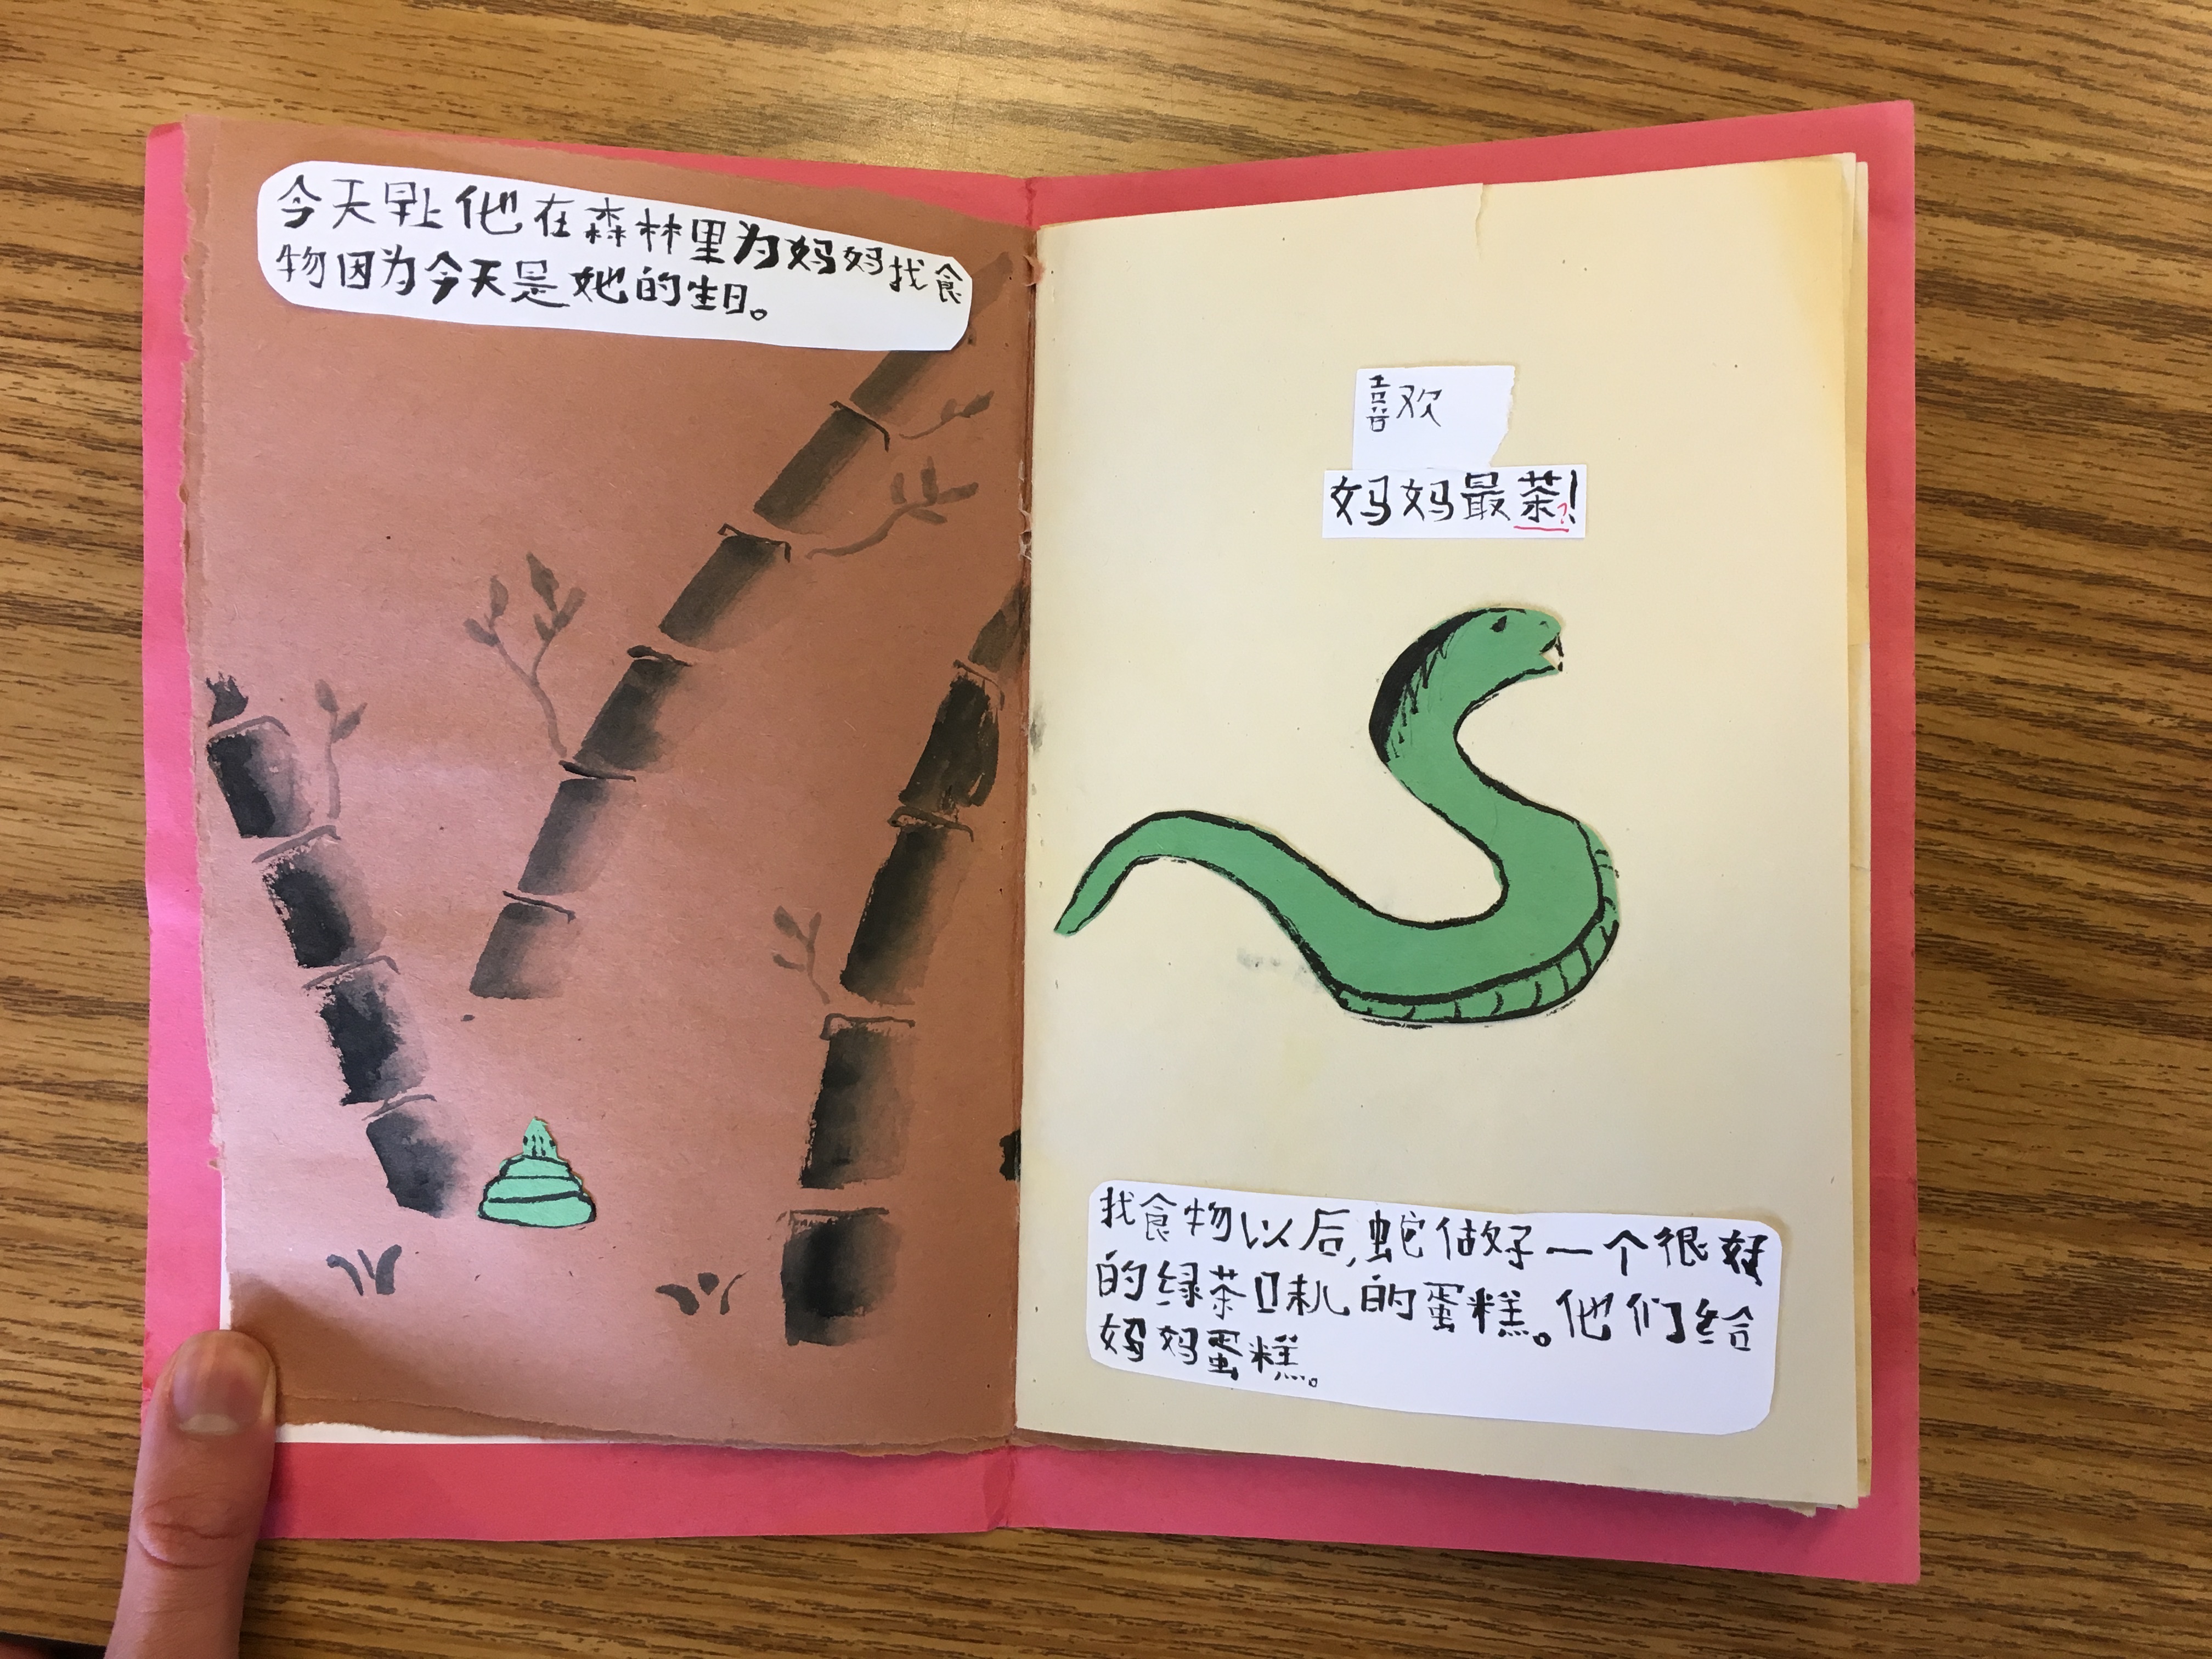 今天早上他在森林里为妈妈找食
物因为今天是她的生日。
喜欢
妈妈最茶?!
找食物以后,蛇做好一个很好
的绿茶口味的蛋糕。他们给
妈妈蛋糕。